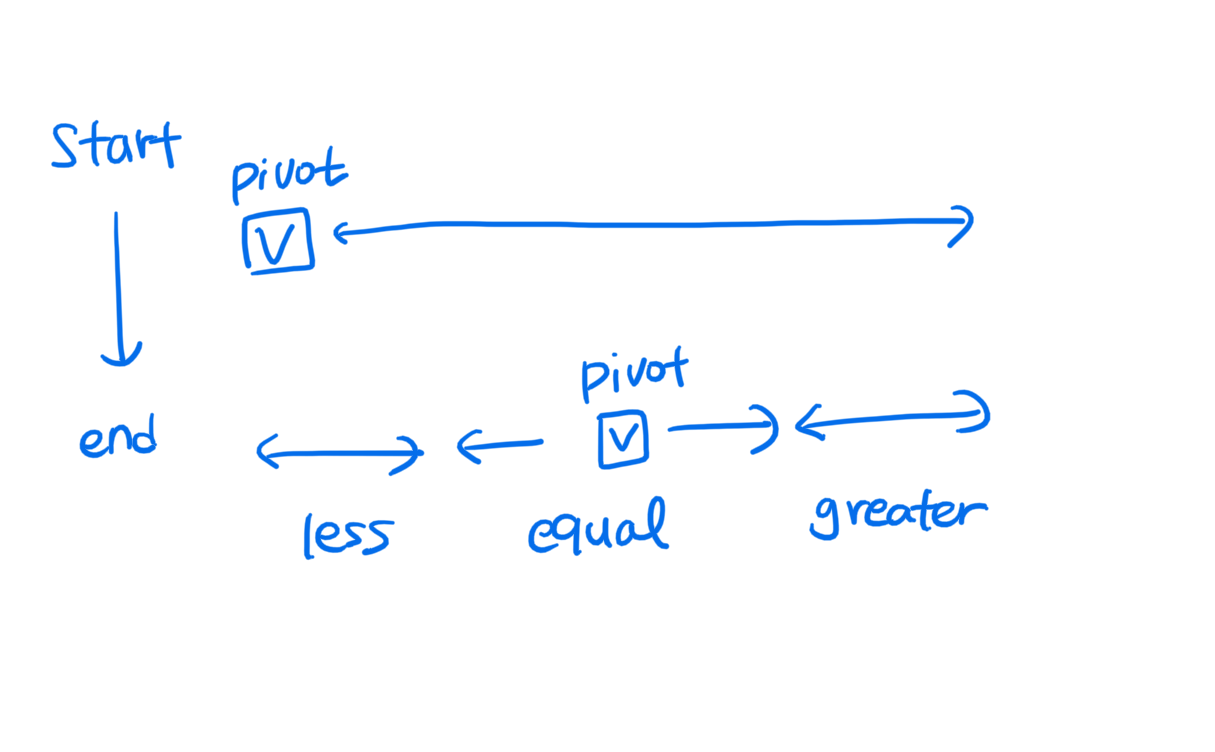 Start
pivot
V
pivot
end
V
less
equal
greater